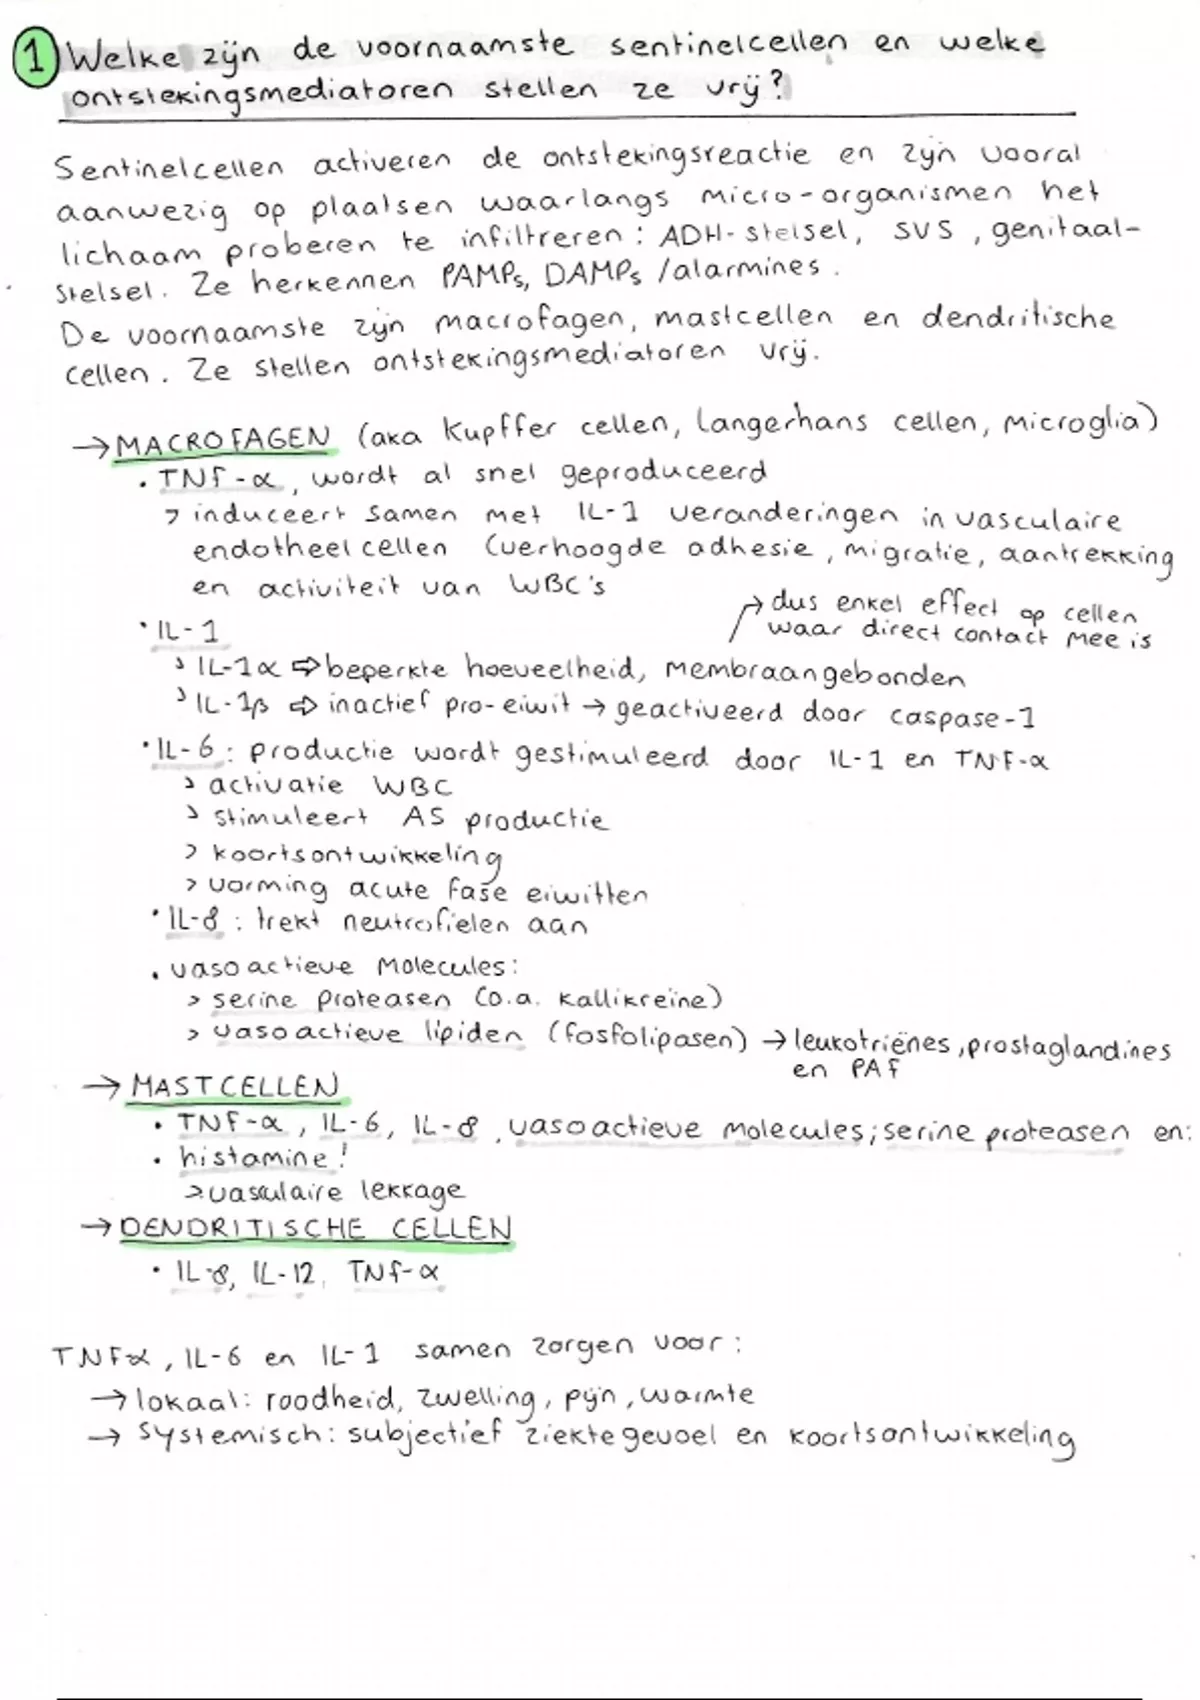 1 Welke zijn de voornaamste sentinelcellen en welke
ontstekingsmediatoren stellen ze vrij?
Sentinelcellen activeren de ontstekingsreactie en zijn vooral
aanwezig op plaatsen waarlangs micro-organismen het
lichaam proberen te infiltreren: ADH-stelsel, SVS, genitaal-
stelsel. Ze herkennen PAMPs, DAMPs /alarmines.
De voornaamste zijn macrofagen, mastcellen en dendritische
cellen. Ze stellen ontstekingsmediatoren vrij.
→ MACROFAGEN (aka Kupffer cellen, Langerhans cellen, microglia)
• TNF-α, wordt al snel geproduceerd
> induceert samen met IL-1 veranderingen in vasculaire
endotheelcellen (verhoogde adhesie, migratie, aantrekking
en activiteit van WBC's
→ dus enkel effect op cellen
waar direct contact mee is
• IL-1
> IL-1α ⇨ beperkte hoeveelheid, membraangebonden
> IL-1β ⇨ inactief pro-eiwit → geactiveerd door caspase-1
• IL-6: productie wordt gestimuleerd door IL-1 en TNF-α
> activatie WBC
> stimuleert AS productie
> koortsontwikkeling
> vorming acute fase eiwitten
• IL-8: trekt neutrofielen aan
• vasoactieve molecules:
> serine proteasen (o.a. kallikreïne)
> vasoactieve lipiden (fosfolipasen) → leukotriënes, prostaglandines
en PAF
→ MASTCELLEN
• TNF-α, IL-6, IL-8, vasoactieve molecules; serine proteasen en:
• histamine!
> vasculaire lekkage
→ DENDRITISCHE CELLEN
• IL-8, IL-12, TNF-α
TNFα, IL-6 en IL-1 samen zorgen voor:
→ lokaal: roodheid, zwelling, pijn, warmte
→ systemisch: subjectief ziektegevoel en koortsontwikkeling